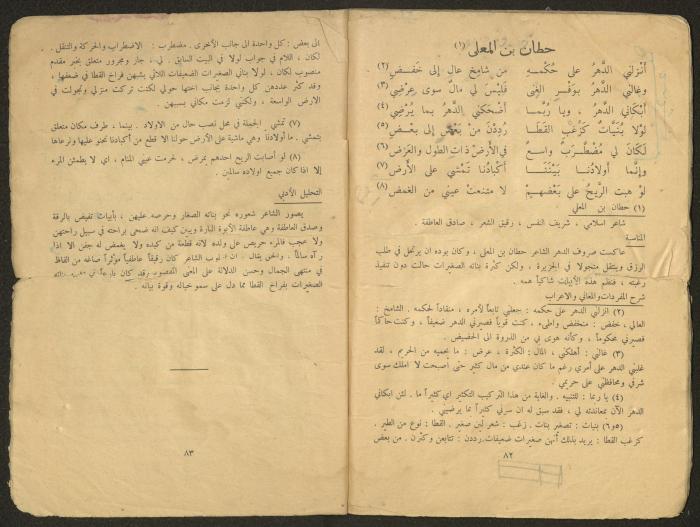 حطان بن المعلى (١)
أنزلني الدهرُ على حُكْمِـهِ من شامِخ عالٍ إلى خَفْـضِ (٢)
وغالني الدَّهرُ بوَفْـرِ الغِنى فَلَيْسَ لي مالٌ سوى عِرْضِي (٣)
أبْكاني الدَّهْرُ ، ويا رُبَّمـا أضْحَكني الدَّهْرُ بما يُرْضِي (٤)
لوْلا بُنَيَّاتٌ كَزُغْبِ القَطَـا رُدِدْنَ مِنْ بَعْضٍ إلى بَعْـضِ (٥)
لَكَانَ لي مُضْطَـرَبٌ واسـعٌ في الأرْضِ ذاتِ الطول والعَرْضِ (٦)
وإنَّمـا أولادُنـا بَيْنَنَـا أكْبادُنَا تَمْشي على الأرْضِ (٧)
لو هبت الرِّيحُ على بَعْضِهـم لامتنعتْ عيني من الغمضِ (٨)
(١) حطان بن المعلى
شاعر اسلامي ، شريف النفس ، رقيق الشعر ، صادق العاطفة .
المناسبة
عاكست صروف الدهر الشاعر حطان بن المعلى ، وكان بوده ان يرتحل في طلب
الرزق وينتقل متجولا في الجزيرة ، ولكن كثرة بناته الصغيرات حالت دون تنفيذ
رغبته ، فنظم هذه الأبيات شاكياً همه .
شرح المفردات والمعاني والاعراب
(٢) انزلني الدهر على حكمه : جعلني تابعاً لأمره ، منقاداً لحكمه . الشامخ :
العالي ، خفض : منخفض واطيء ، كنت قوياً فصيرني الدهر ضعيفاً ، وكنت حاكماً
فصيرني محكوماً ، وكأنه هوى بي من الذروة الى الحضيض .
(٣) غالني : أهلكني ، المال : الكثرة ، عرض : ما يحميه من الحريم ، لقد
غلبني الدهر على أمري رغم ما كان عندي من مال كثير حتى أصبحت لا املك سوى
شرفي ومحافظتي على حريمي .
(٤) يا ربما : للتنبيه . والغاية من هذا التركيب التكثير اي كثيراً ما . لئن ابكاني
الدهر الآن بمعاندته لي ، فقد سبق له ان سرني كثيراً بما يرضيني .
(٥و٦) بنيات : تصغير بنات . زغب : شعر لين صغير . القطا : نوع من الطير .
كزغب القطا : يريد بذلك أنهن صغيرات ضعيفات . رددن : تتابعن وكثرن . من بعض
٨٢
الى بعض : كل واحدة الى جانب الأخرى . مضطرب : الاضطراب والحركة والتنقل .
لكان ، اللام في جواب لولا في البيت السابق . لي ، جار ومجرور متعلق بخبر مقدم
منصوب لكان ، لولا بناتي الصغيرات الضعيفات اللائي يشبهن فراخ القطا في ضعفها ،
وقد كثر عددهن كل واحدة بجانب اختها حولي لكنت تركت منزلي وتجولت في
الارض الواسعة ، ولكنني لزمت مكاني بسببهن .
(٧) تمشي : الجملة في محل نصب حال من الاولاد . بينما ، ظرف مكان متعلق
بتمشي . ما أولادنا وهي ماشية على الأرض حولنا الا قطع من أكبادنا نحنو عليها ونرعاها
(٨) لو أصابت الريح احدهم بمرض ، لحرمت عيني المنام ، اي لا يطمئن المرء
إلا اذا كان جميع أولاده سالمين .
التحليل الأدبي
يصور الشاعر شعوره نحو بناته الصغار وحرصه عليهن ، بأبيات تفيض بالرقة
وصدق العاطفة وهي عاطفة الأبوة البارة ويبين كيف انه ضحى براحته في سبيل راحتهن
ولا عجب فالمرء حريص على ولده لأنه قطعة من كبده ولا يغمض له جفن الا اذا
رآه سالماً . والحق يقال ، ان اسلوب الشاعر كان رقيقاً عاطفياً مؤثراً صاغه من الفاظ
في منتهى الجمال وحسن الدلالة على المعنى المقصود وقد كان بارعاً في تشبيه بناته
الصغيرات بفراخ القطا مما دل على سمو خياله وقوة بيانه .
٨٣